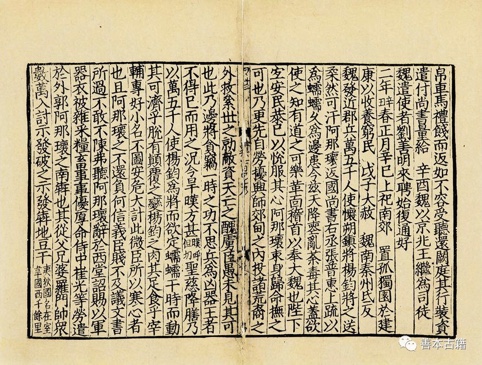 帛車馬禮餞而返如不容受聽還闕庭其行裝資
遣付尚書量給 辛酉魏以京兆王繼為司徒
魏遣使者劉善明來聘始復通好
二年春正月辛巳上祀南郊 置孤獨園於建
康以收養窮民 戊子大赦 魏南秦州氐反
魏發近郡兵萬五千人使懷朔鎮將楊鈞將之送
柔然可汗阿那瓌返國尚書右丞張普惠上疏以
為蠕蠕久為邊患今茲天降喪亂荼毒其心蓋欲
使之知有道之可樂革面稽首以奉大魏也陛下
宜安民恭己以悅服其心阿那瓌束身歸命撫之
可也乃更先自勞擾興師郊甸之內投諸荒裔之
外救累世之勍敵資天亡之醜虜臣愚未見其可
也此乃邊將貪竊一時之功不思兵為凶器王者
不得已而用之況今旱暵方甚聖慈降膳乃
以萬五千人使楊鈞為將而欲定蠕蠕干時而動
其可濟乎脫有顛覆之變楊鈞之肉其足食乎宰
輔專好小名不圖安危大計此微臣所以寒心者
也且阿那瓌之不還負何信義臣賤不及議文書
所過不敢不陳弗聽阿那瓌辭於西堂詔賜以軍
器衣被雜采糧畜事事優厚命侍中崔光等勞遣
於外郭阿那瓌之南奔也其從父兄婆羅門帥眾
數萬入討示發破之示發奔地豆干國名在室韋國西千餘里
善本古籍